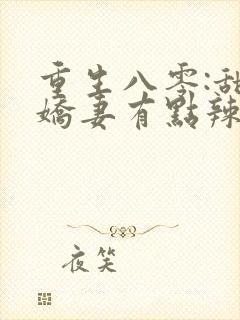 重生八零:甜
嬌妻有點辣
夜笑